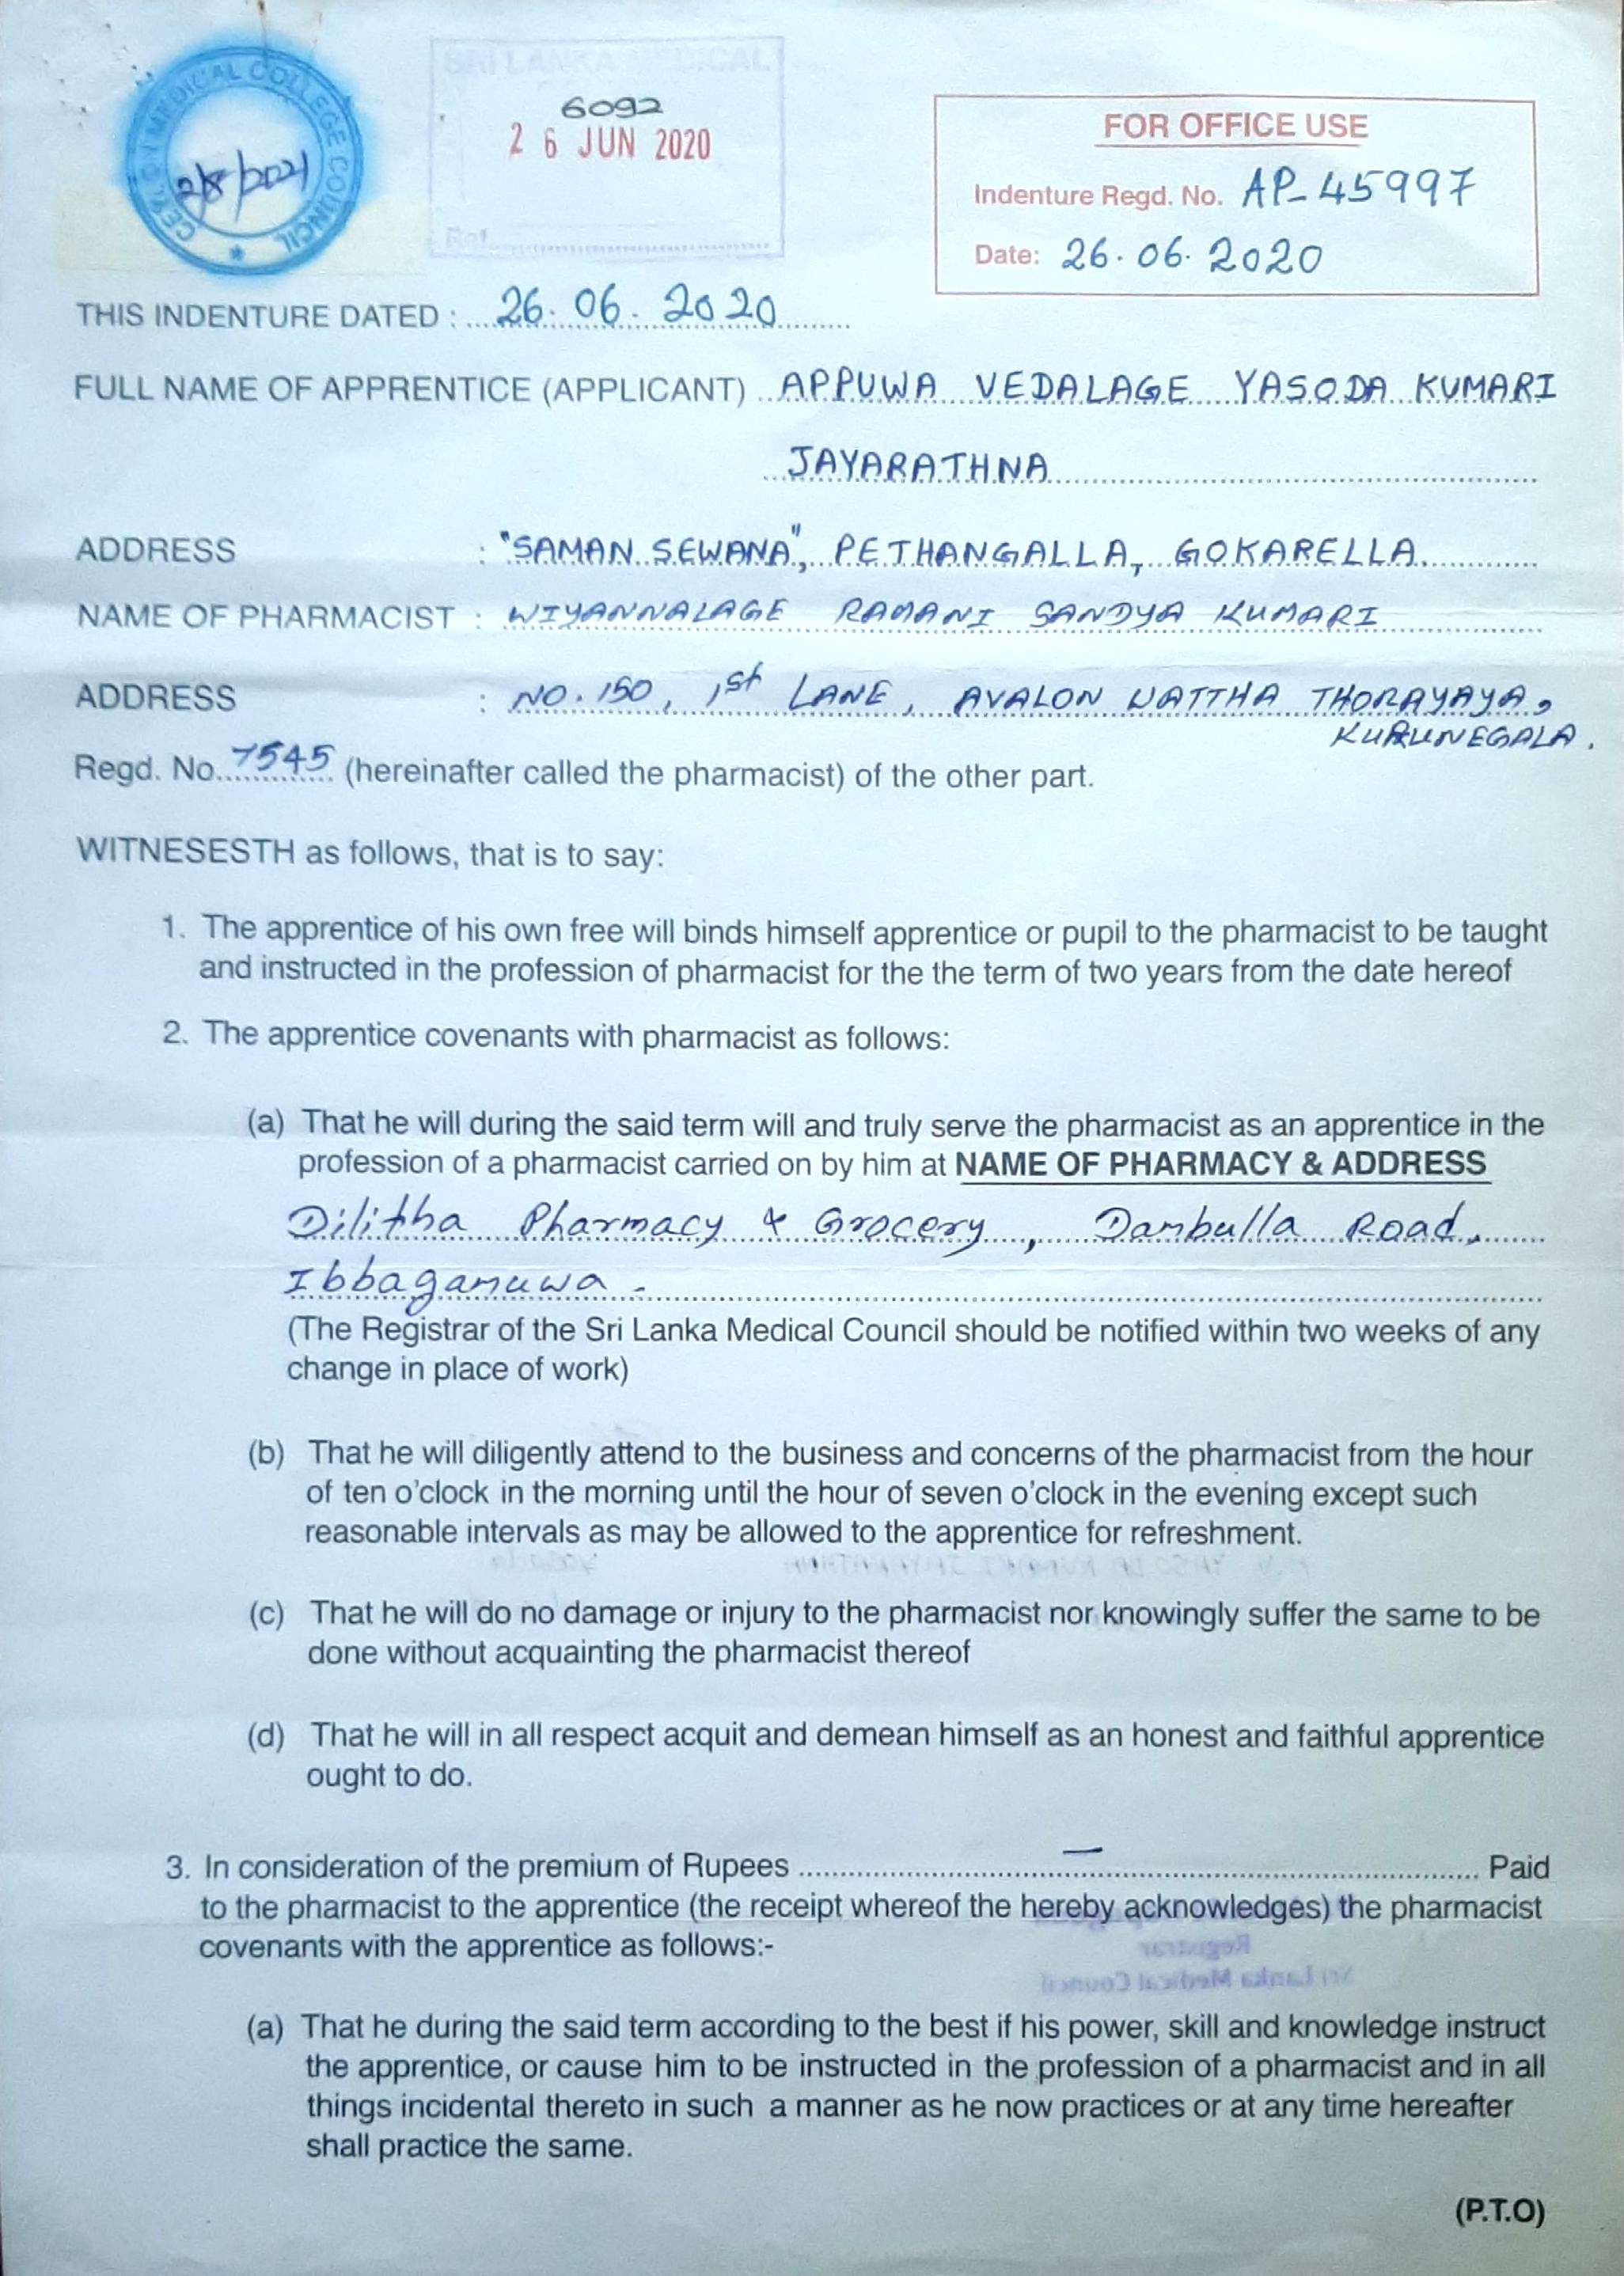 CEYLON MEDICAL COLLEGE COUNCIL
2/8/2021
SRI LANKA MEDICAL
6092
26 JUN 2020
Ref
FOR OFFICE USE
Indenture Regd. No. AP-45997
Date: 26.06.2020
THIS INDENTURE DATED : 26.06.2020
FULL NAME OF APPRENTICE (APPLICANT) APPUWA VEDALAGE YASODA KUMARI
JAYARATHNA
ADDRESS : "SAMAN SEWANA", PETHANGALLA, GOKARELLA.
NAME OF PHARMACIST : WIYANNALAGE RAMANI SANDYA KUMARI
ADDRESS : NO. 150, 1st LANE, AVALON WATTHA THORAYAYA,
KURUNEGALA.
Regd. No. 7545 (hereinafter called the pharmacist) of the other part.
WITNESESTH as follows, that is to say:
1. The apprentice of his own free will binds himself apprentice or pupil to the pharmacist to be taught
and instructed in the profession of pharmacist for the the term of two years from the date hereof
2. The apprentice covenants with pharmacist as follows:
(a) That he will during the said term will and truly serve the pharmacist as an apprentice in the
profession of a pharmacist carried on by him at NAME OF PHARMACY & ADDRESS
Dilitha Pharmacy & Grocery, Dambulla Road,
Ibbagamuwa.
(The Registrar of the Sri Lanka Medical Council should be notified within two weeks of any
change in place of work)
(b) That he will diligently attend to the business and concerns of the pharmacist from the hour
of ten o'clock in the morning until the hour of seven o'clock in the evening except such
reasonable intervals as may be allowed to the apprentice for refreshment.
(c) That he will do no damage or injury to the pharmacist nor knowingly suffer the same to be
done without acquainting the pharmacist thereof
(d) That he will in all respect acquit and demean himself as an honest and faithful apprentice
ought to do.
3. In consideration of the premium of Rupees — Paid
to the pharmacist to the apprentice (the receipt whereof the hereby acknowledges) the pharmacist
covenants with the apprentice as follows:-
Registrar
Sri Lanka Medical Council
(a) That he during the said term according to the best if his power, skill and knowledge instruct
the apprentice, or cause him to be instructed in the profession of a pharmacist and in all
things incidental thereto in such a manner as he now practices or at any time hereafter
shall practice the same.
(P.T.O)